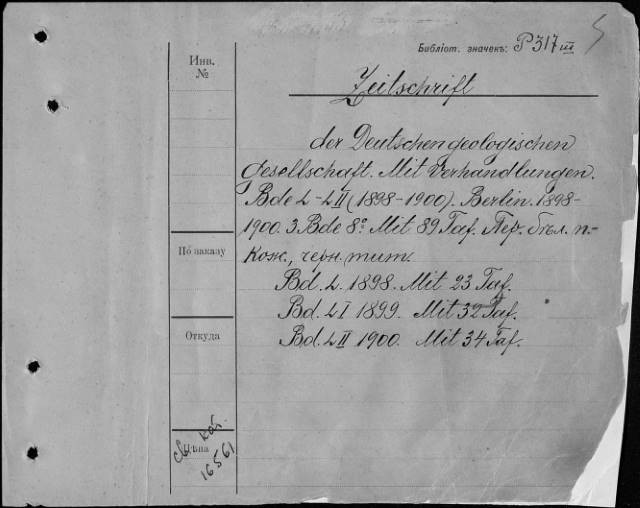 Библіот. значекъ: P 317 III
Инв.
№
Zeitschrift
der Deutschen geologischen
Gesellschaft. Mit Verhandlungen.
Bde L-LII (1898-1900). Berlin. 1898-
1900. 3 Bde 8º. Mit 89 Taf. Пер. бѣл. п.-
кож., черн. тит.
По заказу
Bd. L. 1898. Mit 23 Taf.
Bd. LI 1899. Mit 32 Taf.
Bd. LII 1900. Mit 34 Taf.
Откуда
Цѣна
16561